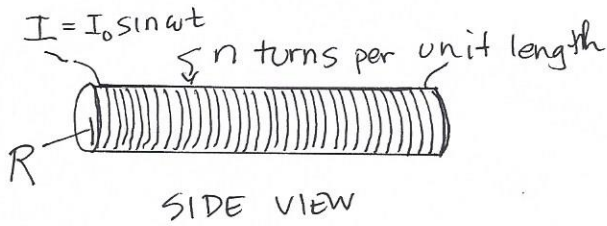 I = I₀ sin ωt
n turns per unit length
R
SIDE VIEW